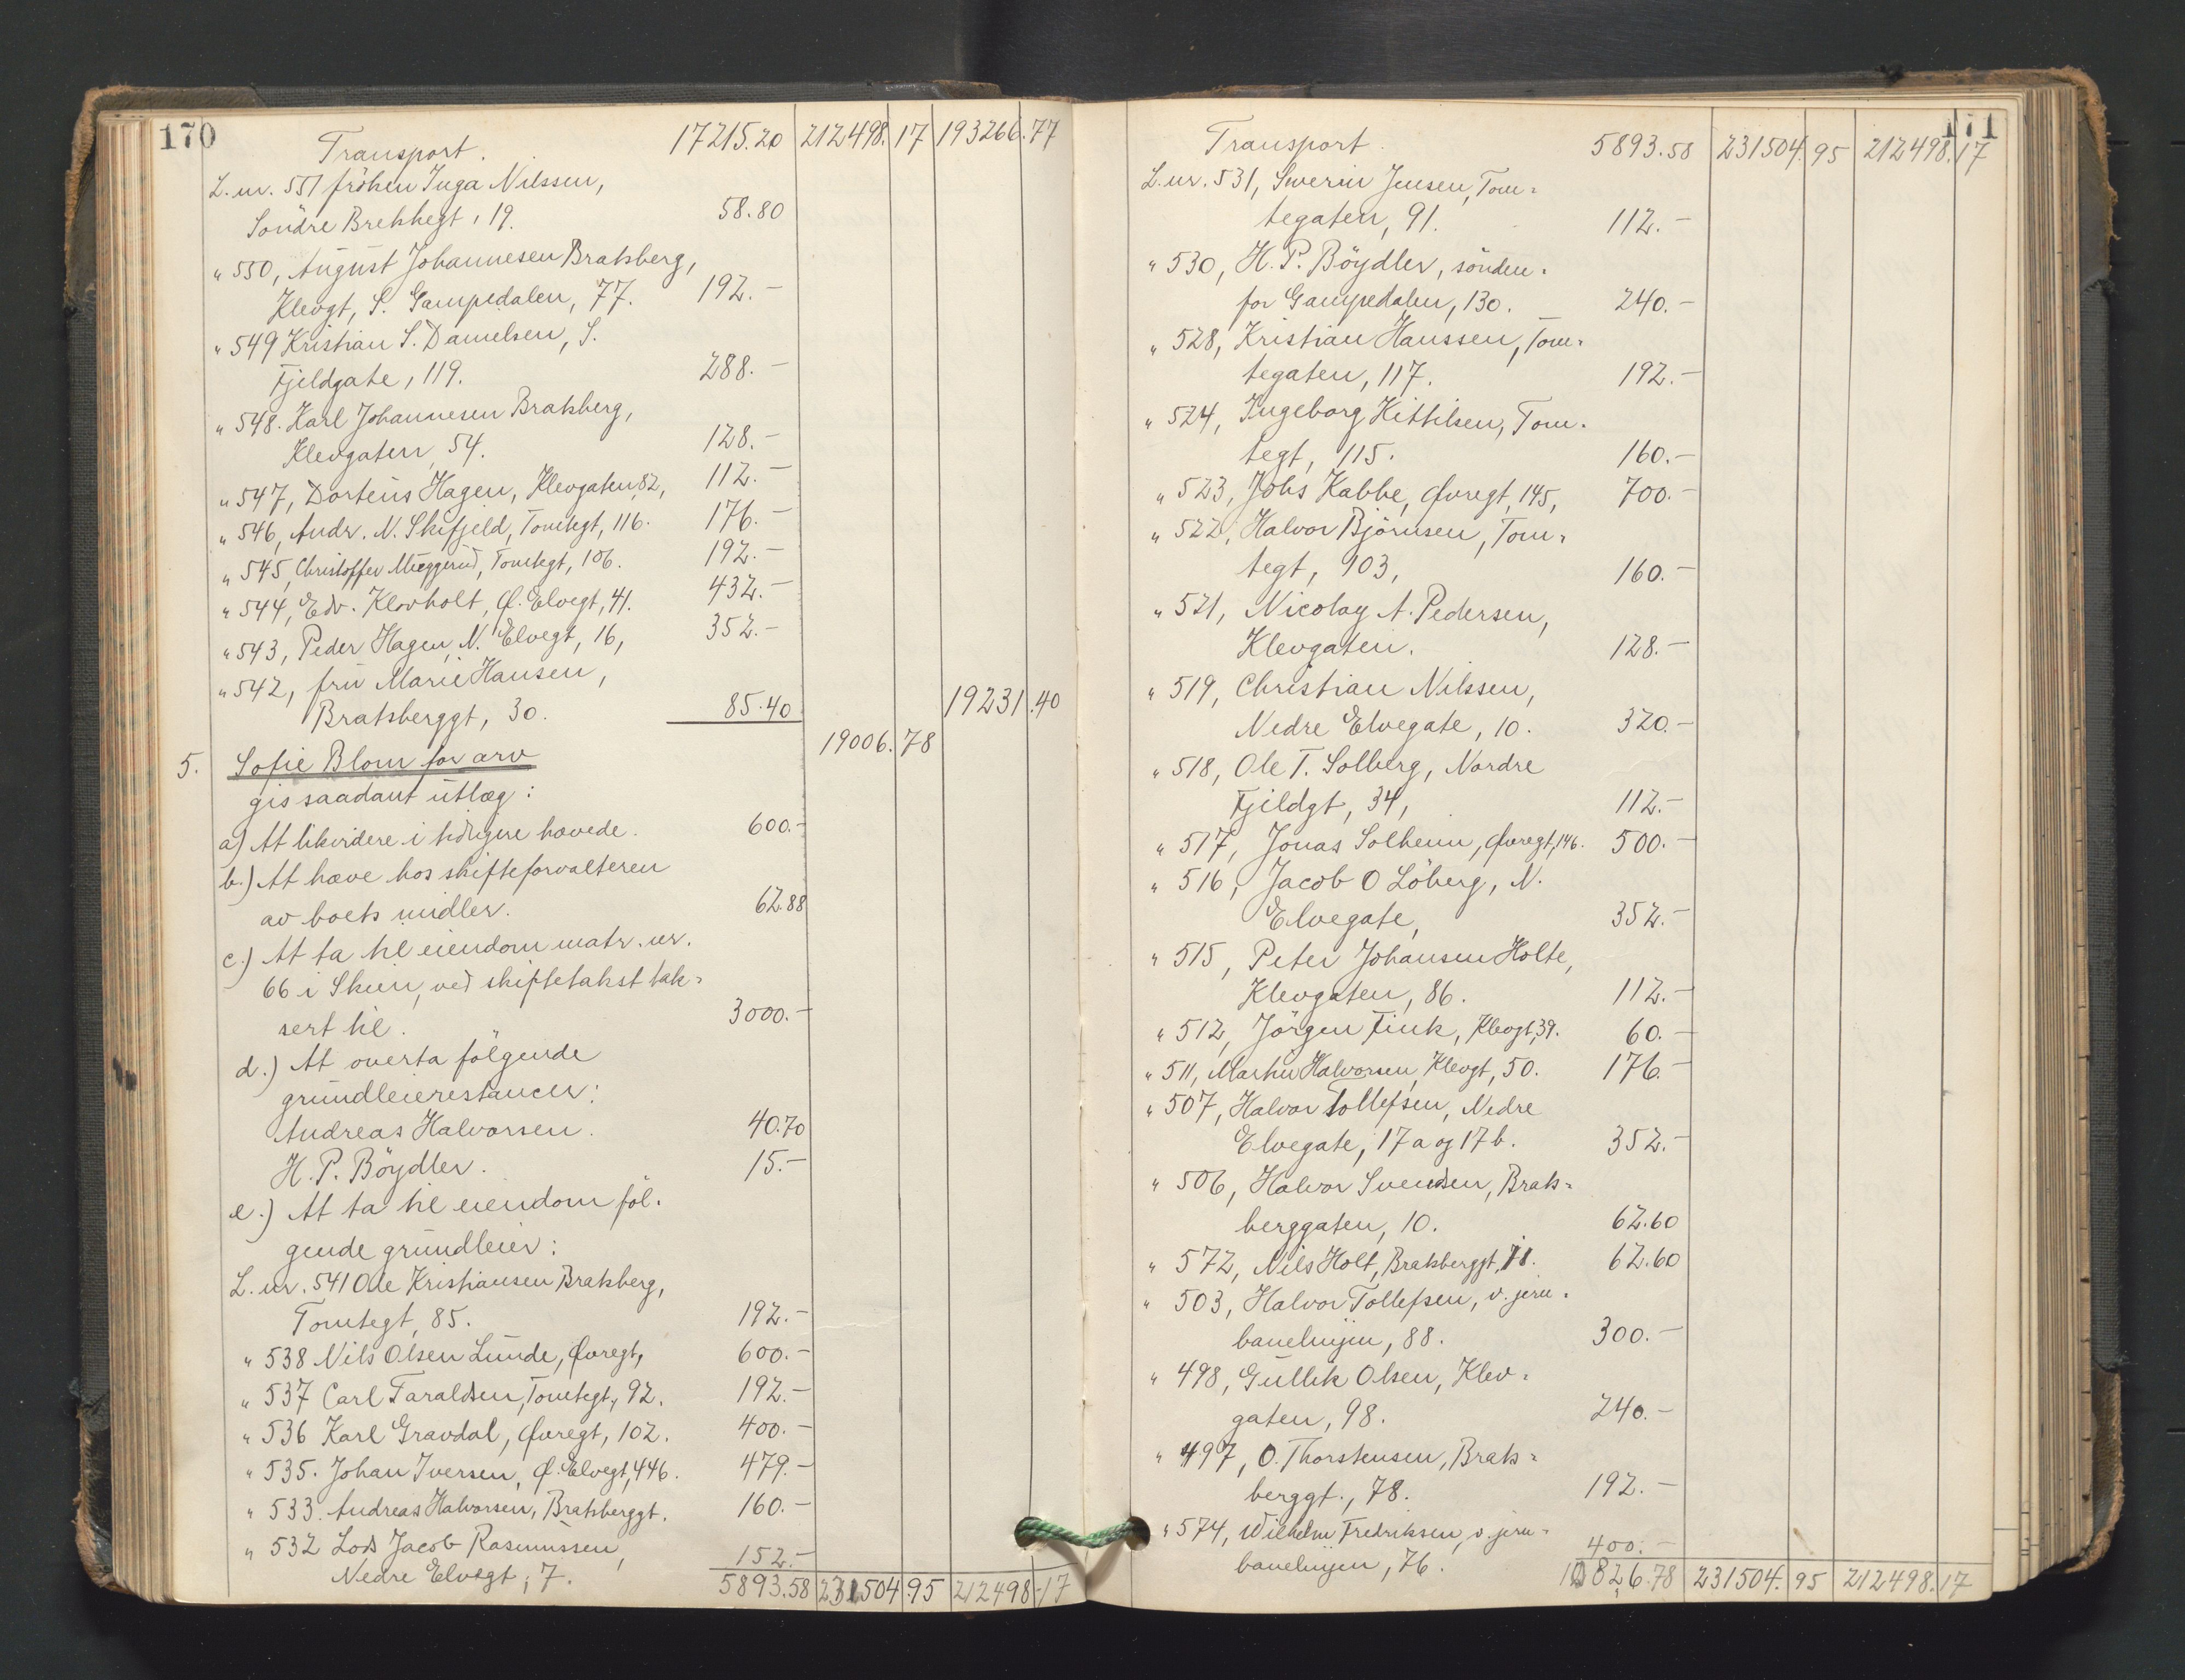 170
Transport. 17215.20 212498.17 193266.77
L. nr. 551 fröken Inga Nilssen,
Söndre Brekkegt, 19. 58.80
" 550, August Johannesen Bratsberg,
Klevgt, S. Gampedalen, 77. 192.-
" 549 Kristian S. Danielsen, S.
Fjeldgate, 119. 288.-
" 548. Karl Johannesen Bratsberg,
Klevgaten, 54. 128.-
" 547, Dorteus Hagen, Klevgaten, 82, 112.-
" 546, Andr. N. Skifjeld, Tomtegt, 116. 176.-
" 545, Christoffer Muggerud, Tomtegt, 106. 192.-
" 544, Edv. Klovholt, Ø. Elvegt, 41. 432.-
" 543, Peder Hagen, N. Elvegt, 16, 352.-
" 542, frü Marie Hansen,
Bratsberggt, 30. 85.40 19231.40
19006.78
5. Sofie Blom for arv
gis saadant utlæg:
a) At likvidere i tidligere hævede. 600.-
b.) At hæve hos skifteforvalteren
av boets midler. 62.88
c.) At ta til eiendom matr. nr.
66 i Skien, ved skiftetakst tak=
sert til. 3000.-
d.) At overta følgende
grundleierestancer:
Andreas Halvorsen. 40.70
H. P. Böydler. 15.-
e.) At ta til eiendom föl-
gende grundleier:
L. nr. 541 Ole Kristiansen Bratsberg,
Tomtegt, 85. 192.-
" 538 Nils Olsen Lunde, Øvregt, 600.-
" 537 Carl Taraldsen, Tomtegt, 92. 192.-
" 536 Karl Gravdal, Øvregt, 102. 400.-
" 535. Johan Iversen, Ø. Elvegt, 446. 479.-
" 533. Andreas Halvorsen, Bratsberggt. 160.-
" 532 Lods Jacob Rasmussen,
Nedre Elvegt, 7. 152.-
5893.58 231504.95 212498.17
171
Transport. 5893.58 231504.95 212498.17
L. nr. 531, Swerin Jensen, Tom=
tegaten, 91. 112.-
" 530, H. P. Böydler, sönden-
for Gampedalen, 130. 240.-
" 528, Kristian Hanssen, Tom-
tegaten, 117. 192.-
" 524, Ingeborg Kittilsen, Tom-
tegt, 115. 160.-
" 523, Johs Kabbe, Øvregt, 145, 700.-
" 522, Halvor Björnsen, Tom-
tegt, 103, 160.-
" 521, Nicolay A. Pedersen,
Klevgaten. 128.-
" 519, Christian Nilssen,
Nedre Elvegate, 10. 320.-
" 518, Ole T. Solberg, Nordre
Fjeldgt, 34, 112.-
" 517, Jonas Solheim, Øvregt, 146. 500.-
" 516, Jacob O Löberg, N.
Elvegate, 352.-
" 515, Peter Johansen Holte,
Klevgaten, 86. 112.-
" 512, Jörgen Fink, Klevgt, 39. 60.-
" 511, Martin Halvorsen, Klevgt, 50. 176.-
" 507, Halvor Tollefsen, Nedre
Elvegate, 17 a og 17 b. 352.-
" 506, Halvor Svendsen, Brats=
berggaten, 10. 62.60
" 572, Nils Holt, Bratsberggt, 11. 62.60
" 503, Halvor Tollefsen, v. jern-
banelinjen, 88. 300.-
" 498, Gullik Olsen, Klev-
gaten, 98. 240.-
" 497, O. Thorstensen, Brats=
berggt., 78. 192.-
" 574, Wilhelm Fredriksen, v. jern-
banelinjen, 76. 400.-
10826.78 231504.95 212498.17